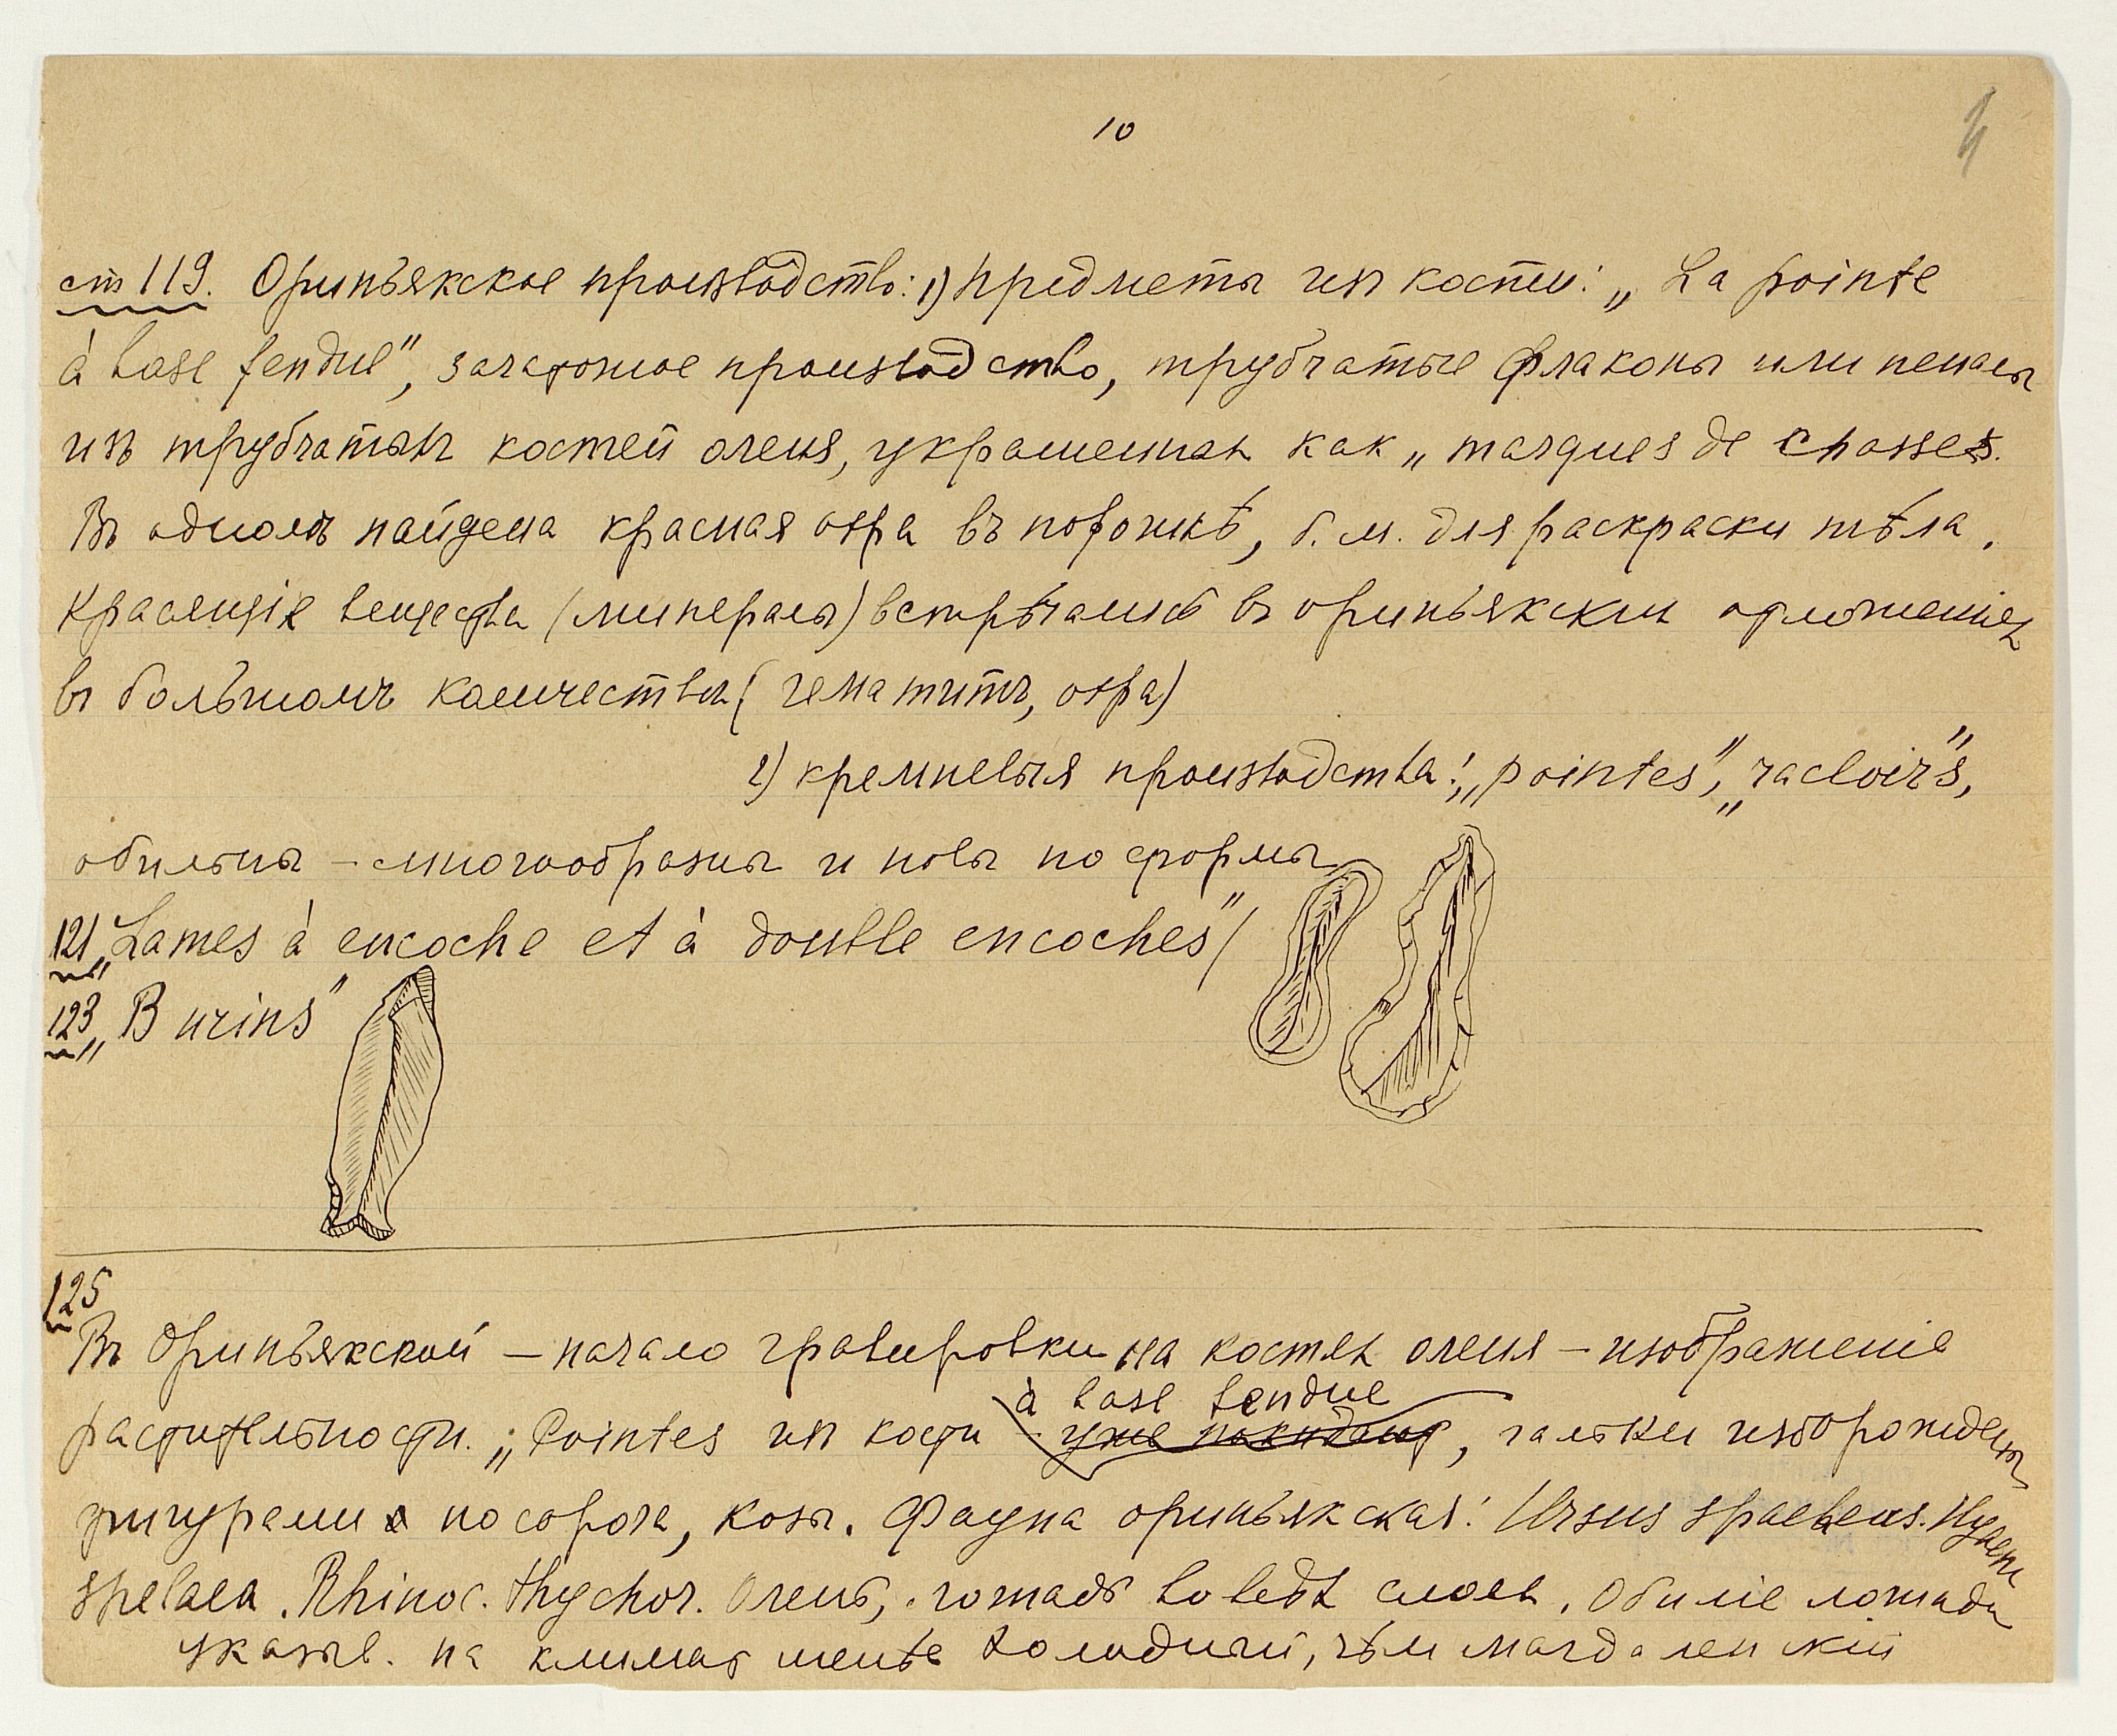 10
4
ст 119. Ориньякское производство: 1) предметы изъ кости: „ La pointe
à base fendue", зачаточное производство, трубчатые флаконы или пеналы
изъ трубчатыхъ костей оленя, украшенныхъ как „ marques de chasses.
Въ одномъ найдена красная охра въ порошкѣ, б. м. для раскраски тѣла.
Красящіе вещества (минералы) встрѣчались въ ориньякских отложеніях
въ большомъ количествѣ (гематитъ, охра)
2) кремневыя производства: „pointes", „racloirs",
обильны – многообразны и новы по формѣ
121 „Lames à encoche et à double encoches"
123 „Burins"
125
Въ Ориньякской – начало гравировки на костях оленя – изображеніе
à base fendue
растительности. „Pointes изъ кости – уже , гальки изборождены
фигурами носорога, козы. Фауна ориньякская: Ursus spaeleus. Hyaena
spelaea. Rhinoc. thychor. Олень, лошадь во всѣх слоях. Обиліе лошади
указыв. на климат менѣе холодный, чѣм магдаленскій